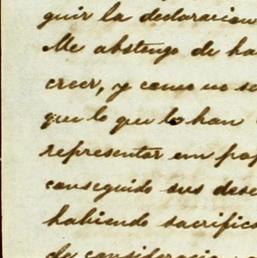 guir la declaracion
Me abstengo de ha
creer, y como no se
que lo que lo han
representar em pap
conseguido sus dese
habiendo sacrific
de consideracio